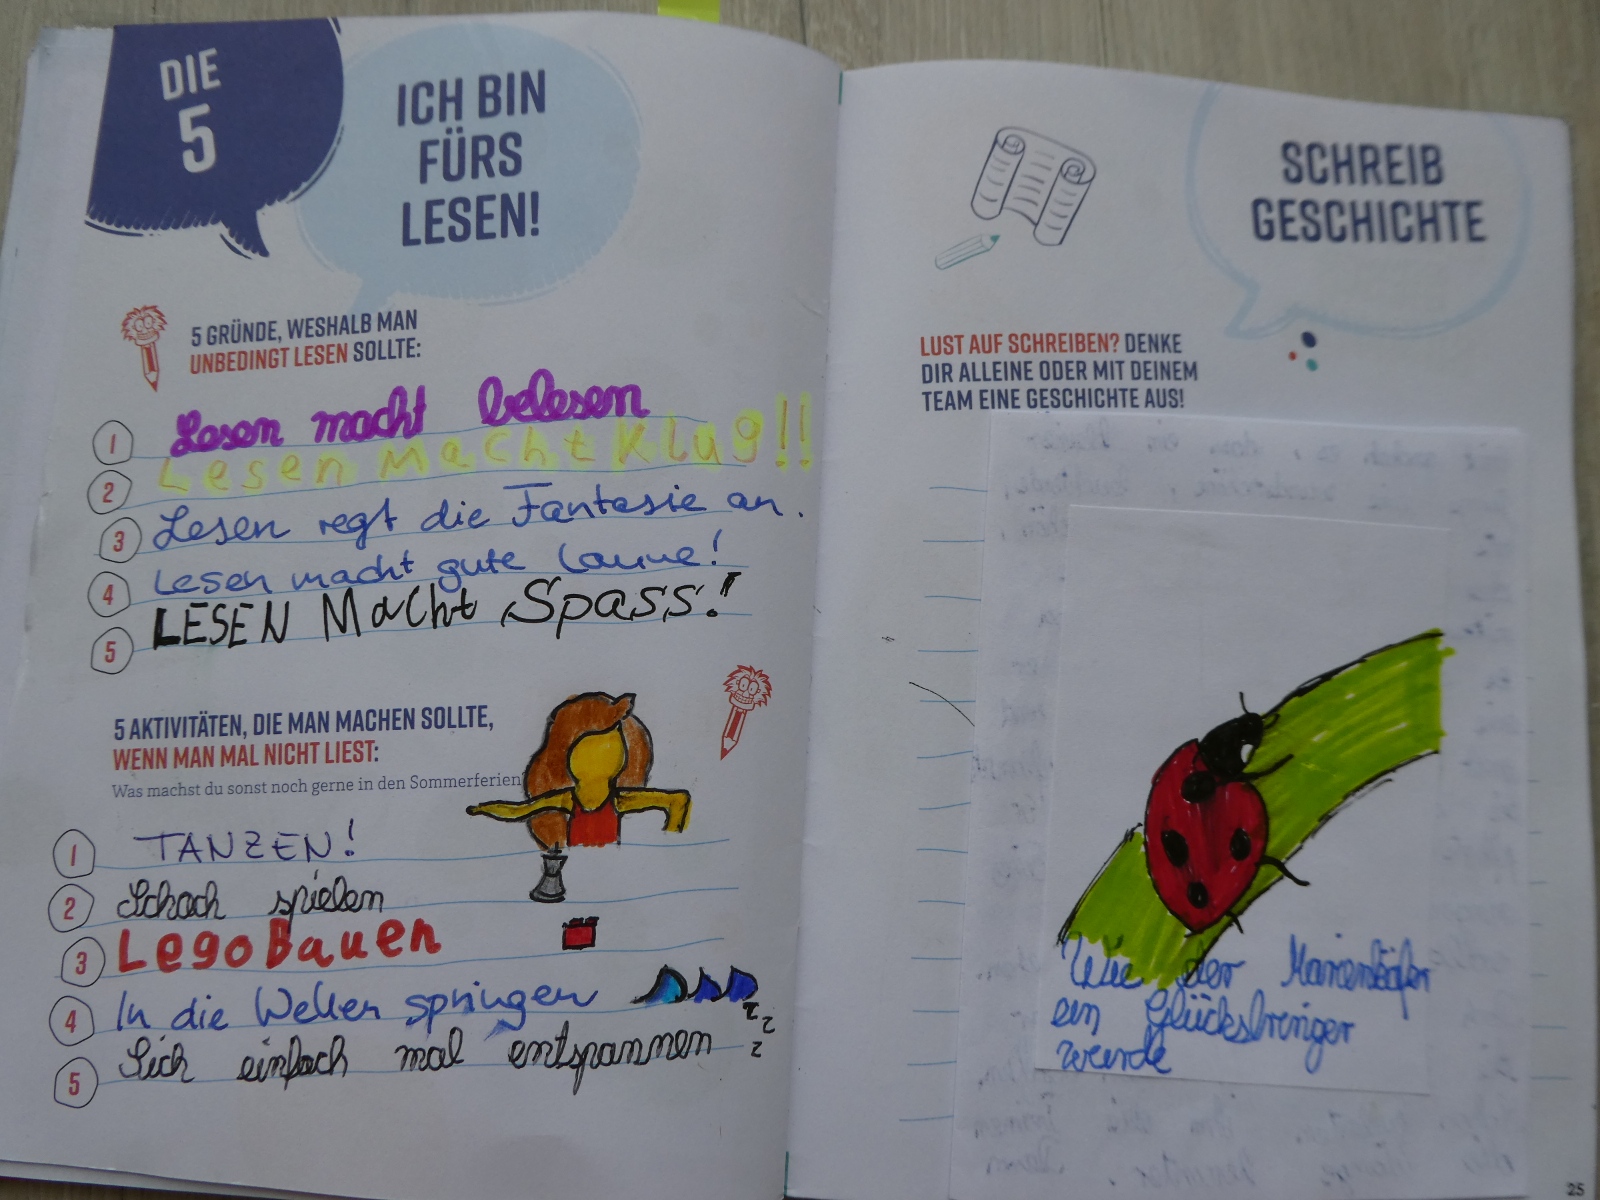 DIE
5
ICH BIN
FÜRS
LESEN!
5 GRÜNDE, WESHALB MAN
UNBEDINGT LESEN SOLLTE:
1 Lesen macht belesen
2 Lesen Macht Klug!!
3 Lesen regt die Fantasie an.
4 Lesen macht gute Laune!
5 LESEN Macht Spass!
5 AKTIVITÄTEN, DIE MAN MACHEN SOLLTE,
WENN MAN MAL NICHT LIEST:
Was machst du sonst noch gerne in den Sommerferien?
1 TANZEN!
2 Schach spielen
3 Lego Bauen
4 In die Wellen springen
5 Sich einfach mal entspannen
z z z
SCHREIB
GESCHICHTE
LUST AUF SCHREIBEN? DENKE
DIR ALLEINE ODER MIT DEINEM
TEAM EINE GESCHICHTE AUS!
Wie der Marienkäfer
ein Glücksbringer
wurde
25